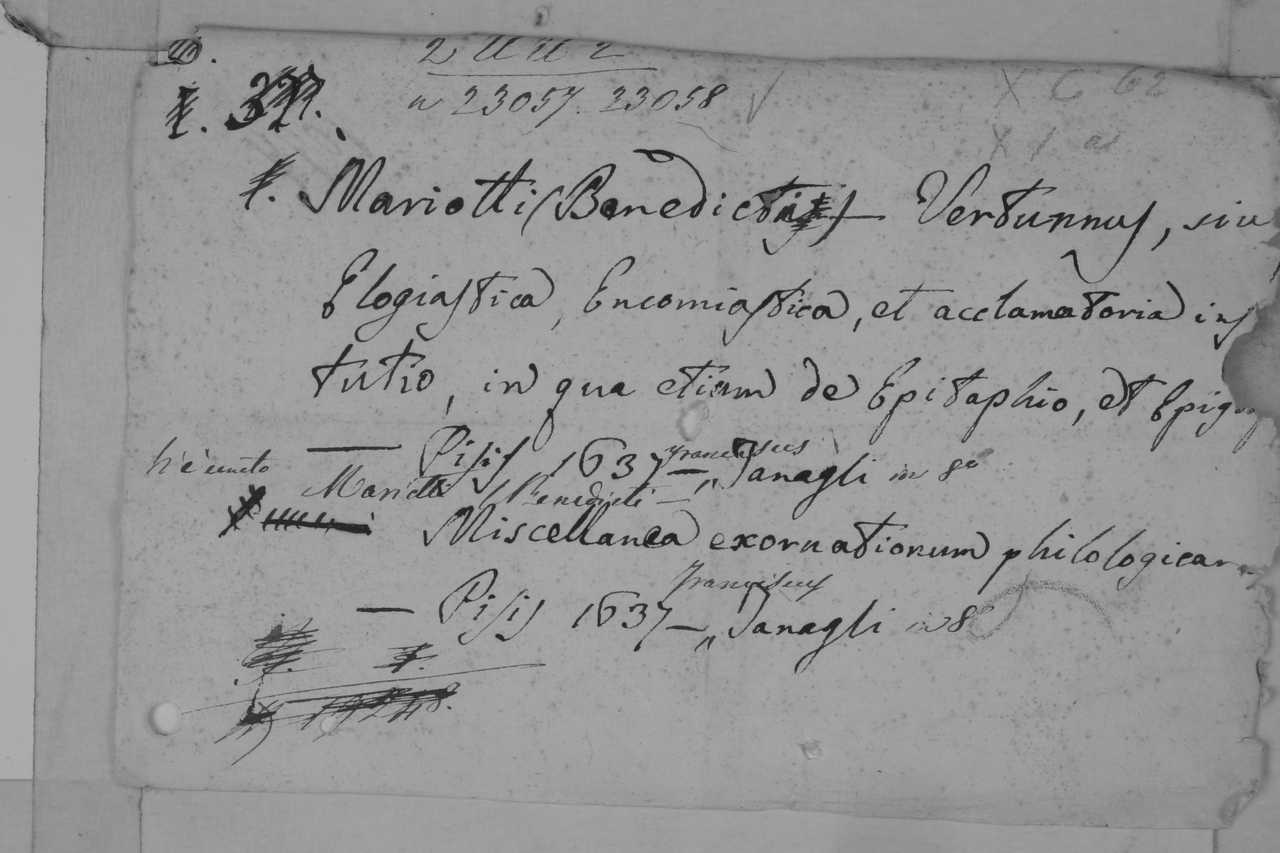 n 23057. 23058
X C 62
Mariotti (Benedicti) — Vertunnus, siu
Elogiastica, Encomiastica, et acclamatoria ins
tutio, in qua etiam de Epitaphio, et Epig
— Pisis 1637 — „ Franciscus Tanagli in 8°
h'è unito
Mariotti Benedicti —
Miscellanea exornationum philologicar
— Pisis 1637 — „ Franciscus Tanagli in 8°